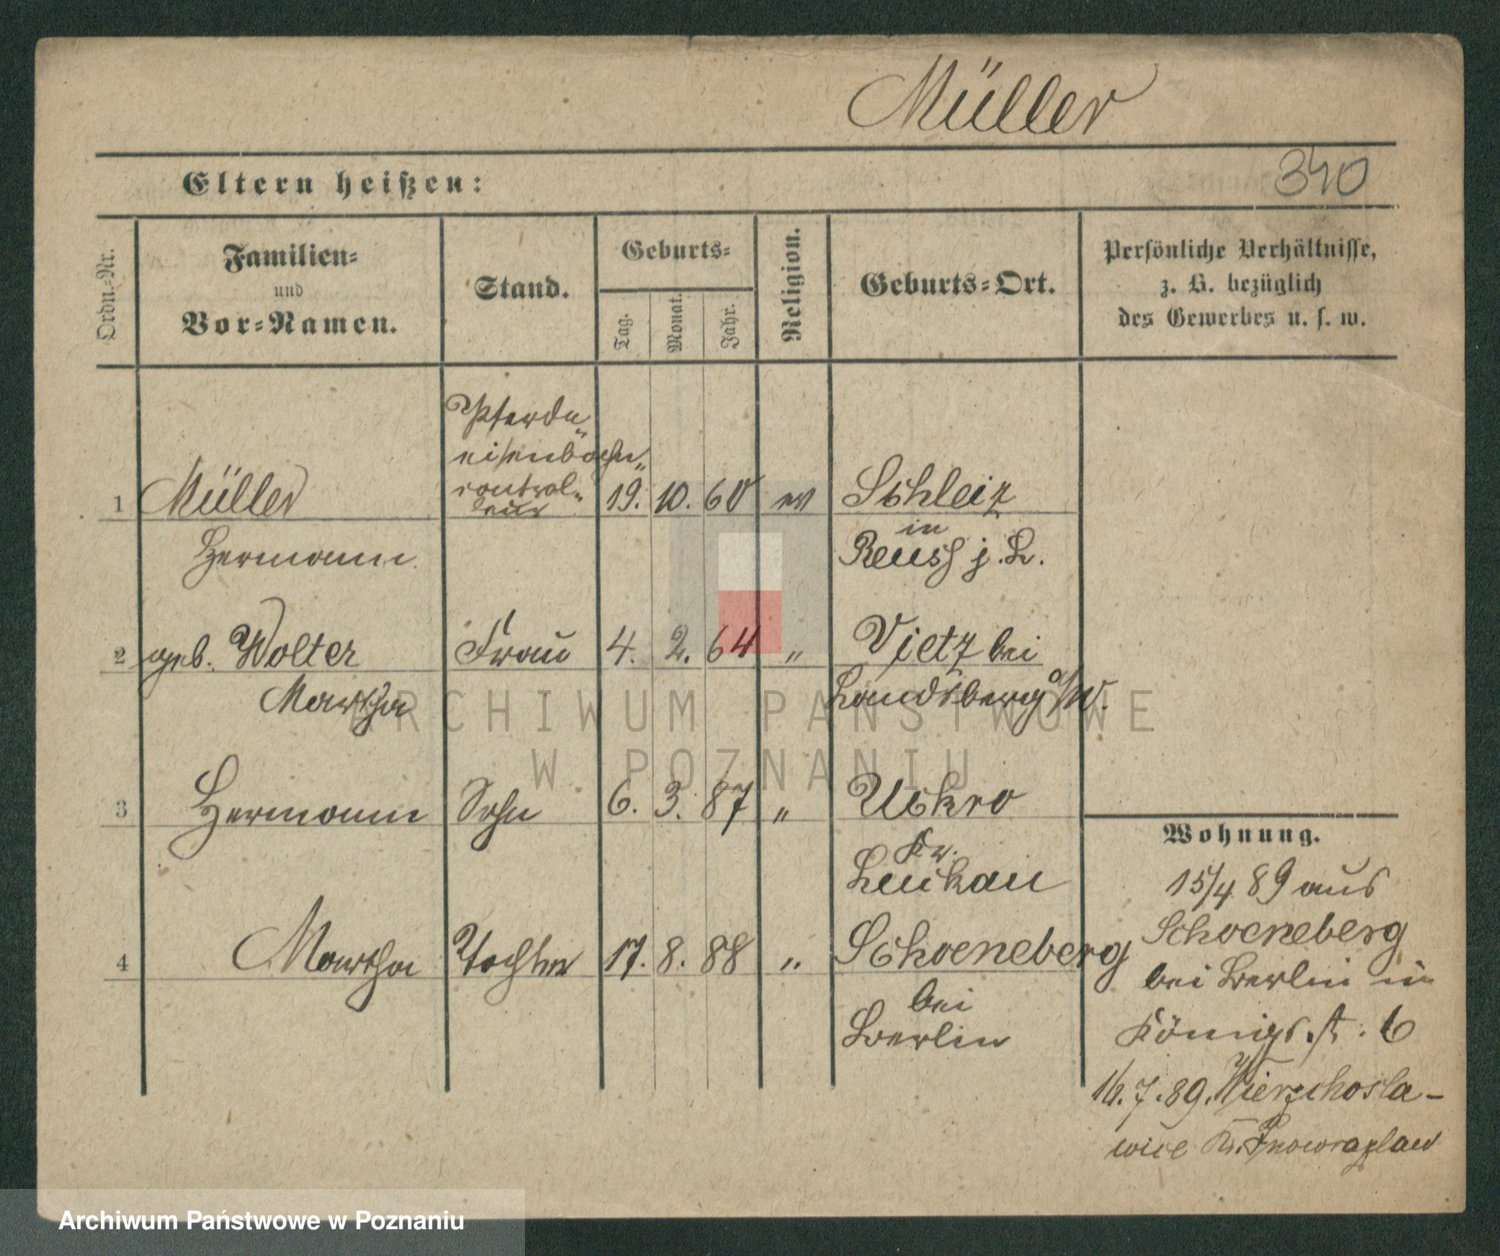 Müller
340
Eltern heißen:
Ordn.-Nr.
Familien-
und
Vor-Namen.
Stand.
Geburts-
Tag.
Monat.
Jahr.
Religion.
Geburts-Ort.
Persönliche Verhältnisse,
z. B. bezüglich
des Gewerbes u. s. w.
1 Müller Pferde- 19. 10. 60 ev Schleiz
eisenbahn-
control-
eur
Hermann
in
Reuss j. L.
2 geb. Wolter Frau 4. 2. 64 " Vietz bei
Martha Landsberg a/W.
3 Hermann Sohn 6. 3. 87 " Uckro
Kr.
Luckau
4 Martha Tochter 17. 8. 88 " Schoeneberg
bei
Berlin
Wohnung.
15/4 89 aus
Schoeneberg
bei Berlin in
Königsst. 6
16. 7. 89. Wierzchosla-
wice Kr. Inowrazlaw
ARCHIWUM PAŃSTWOWE
W POZNANIU
Archiwum Państwowe w Poznaniu